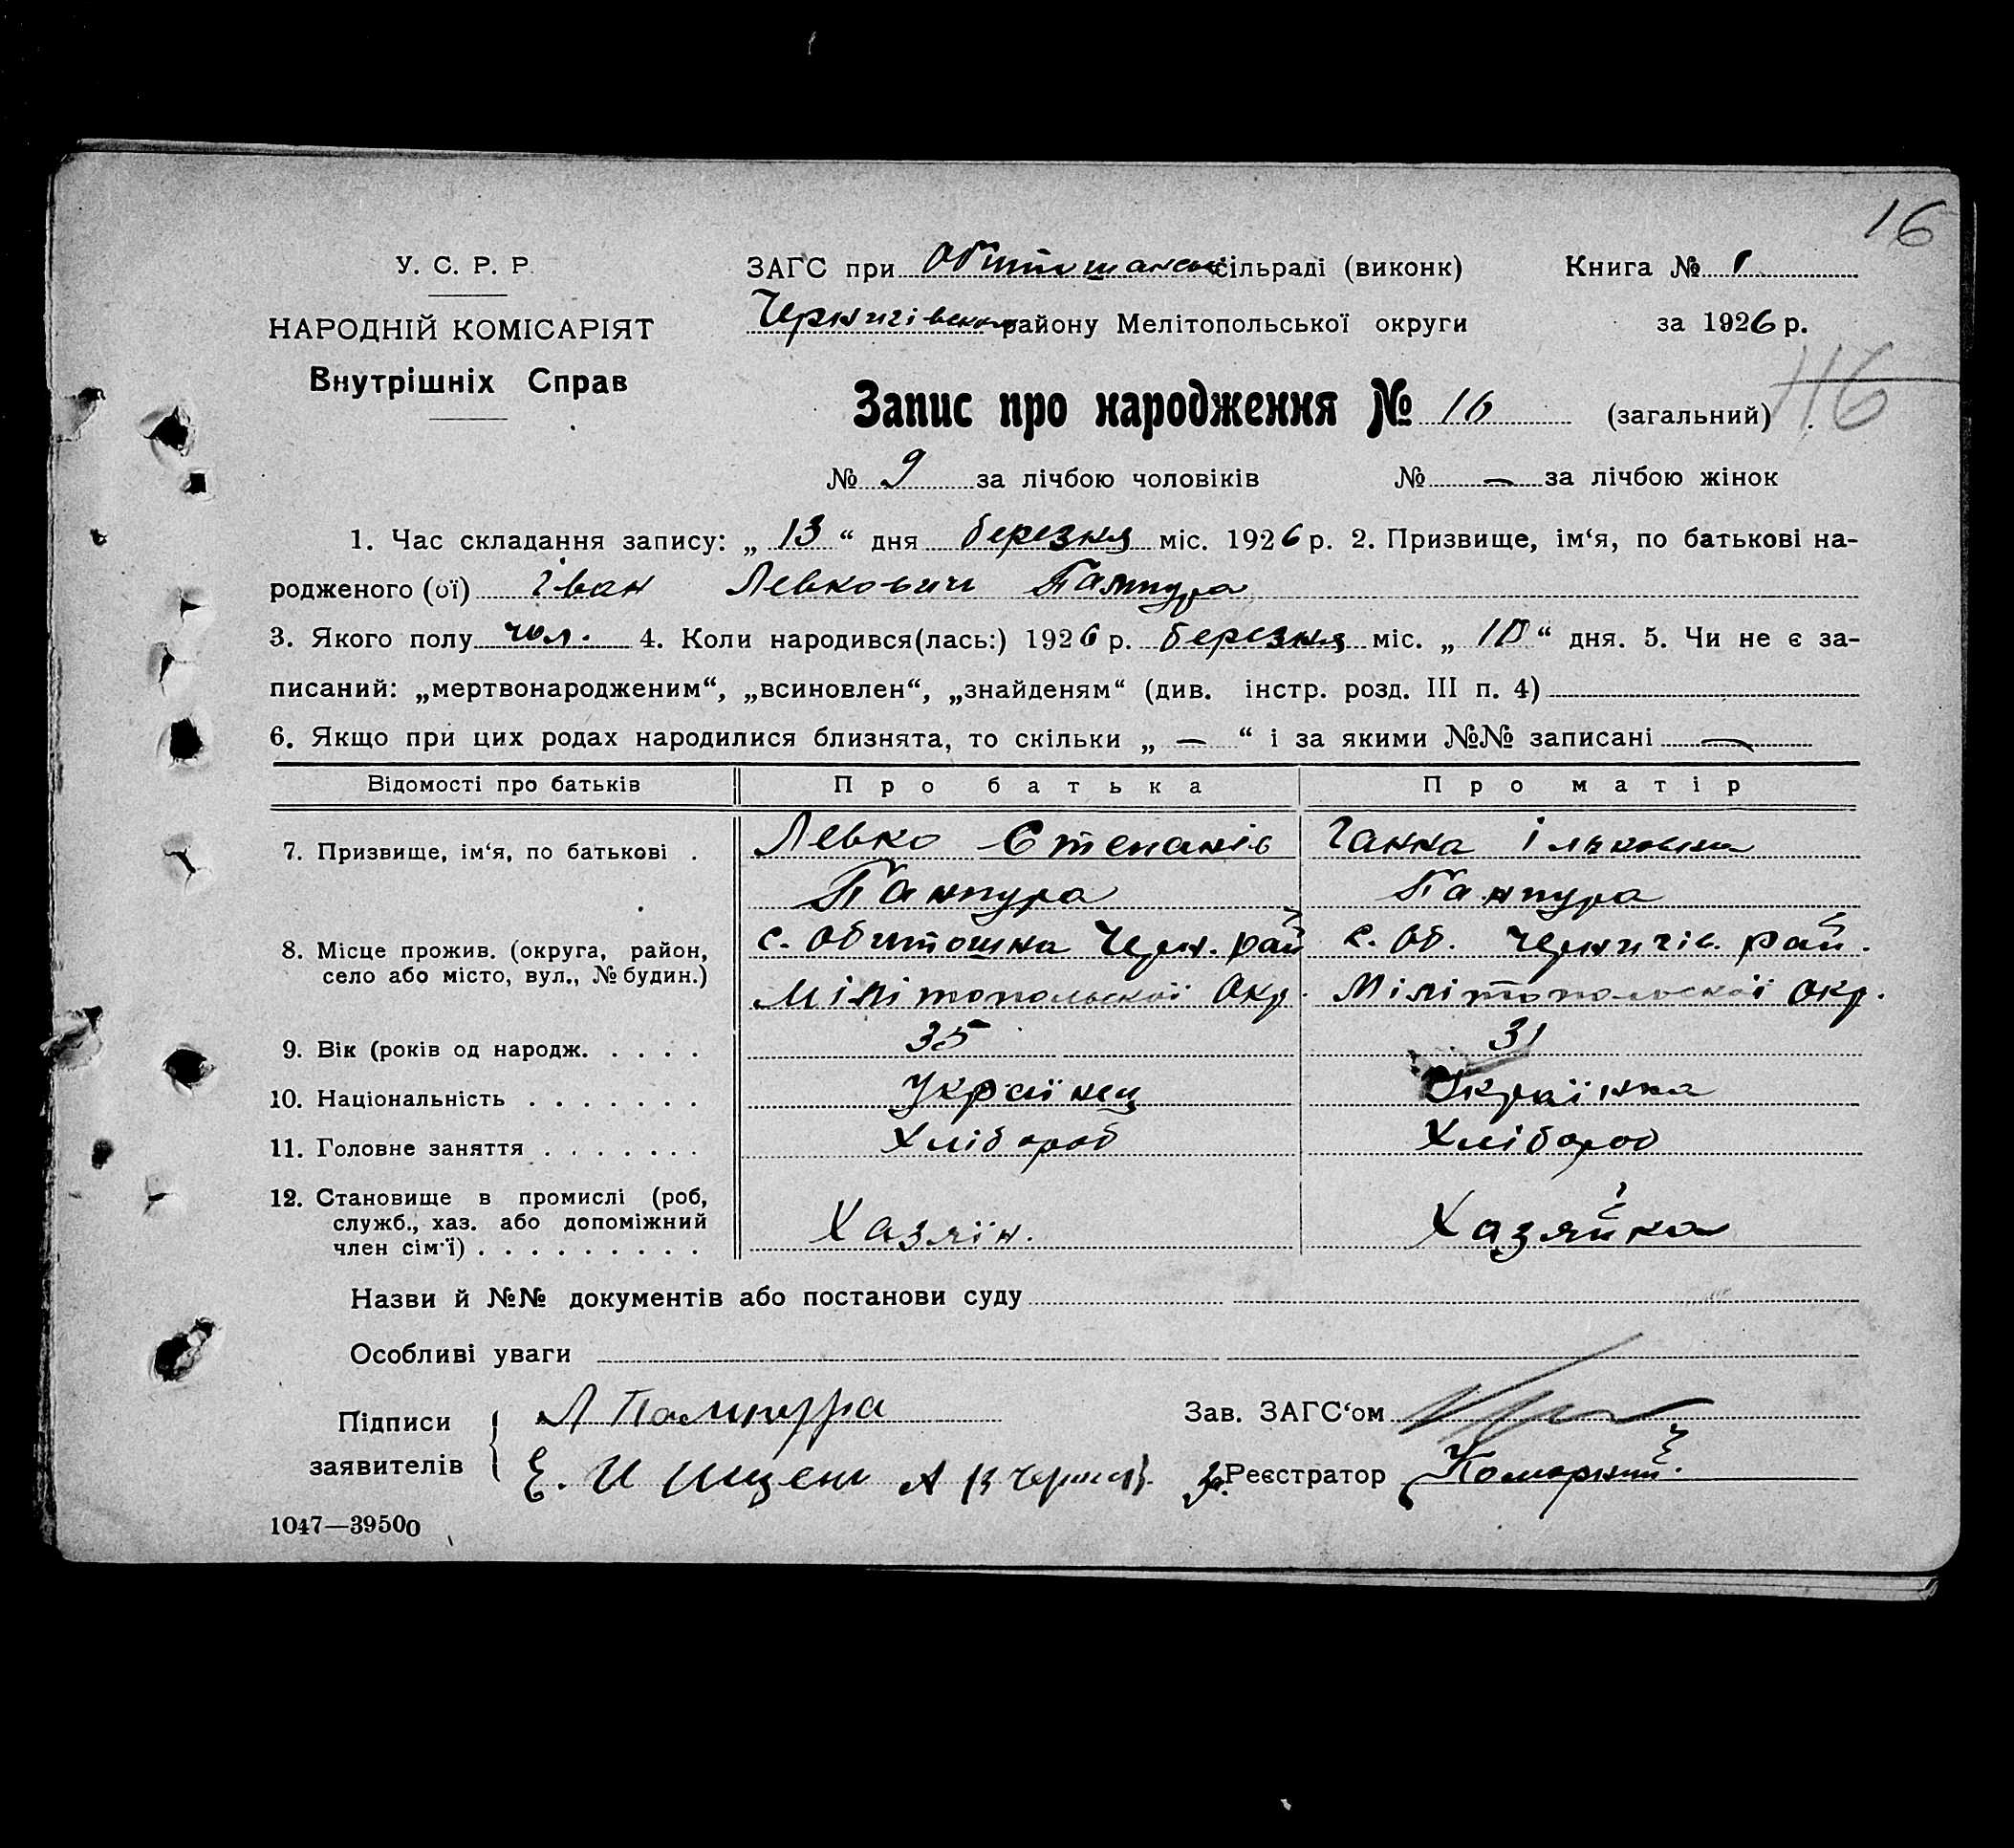 16
У. С. Р. Р.
НАРОДНІЙ КОМІСАРІЯТ
Внутрішніх Справ
ЗАГС при Обитошанськ сільраді (виконк) Книга № 1
Чернигівськ району Мелітопольської округи за 1926 р.
Запис про народження № 16 (загальний) 116
№ 9 за лічбою чоловіків № — за лічбою жінок
1. Час складання запису: „ 13 “ дня березня міс. 1926 р. 2. Призвище, ім‘я, по батькові на-
родженого (ої) Іван Левкович Пампура
3. Якого полу чол. 4. Коли народився(лась:) 1926 р. березня міс. „ 10 “ дня. 5. Чи не є за-
писаний: „мертвонародженим“, „всиновлен“, „знайденям“ (див. інстр. розд. III п. 4)
6. Якщо при цих родах народилися близнята, то скільки „ — “ і за якими №№ записані —
Відомості про батьків Про батька Про матір
7. Призвище, ім‘я, по батькові . Левко Степанів Ганна Ільковна
Панпура Панпура
8. Місце прожив. (округа, район, с. Обитошна Черн. рай с. Об. Чернигів. рай.
село або місто, вул., № будин.) Мілітопольської Окр. Мілітопольскої окр.
9. Вік (років од народж. . . . . 35 31
10. Національність . . . . . . . Українец Українка
11. Головне заняття . . . . . . . Хлібороб Хлібороб
12. Становище в промислі (роб, служб., хаз. або допоміжний член сім‘ї) . . . . . . . . . Хазяїн. Хазяйка
Назви й №№ документів або постанови суду
Особливі уваги
Підписи Л Пампура Зав. ЗАГС‘ом
заявителів Є. И Ищен А Реєстратор
1047—39500